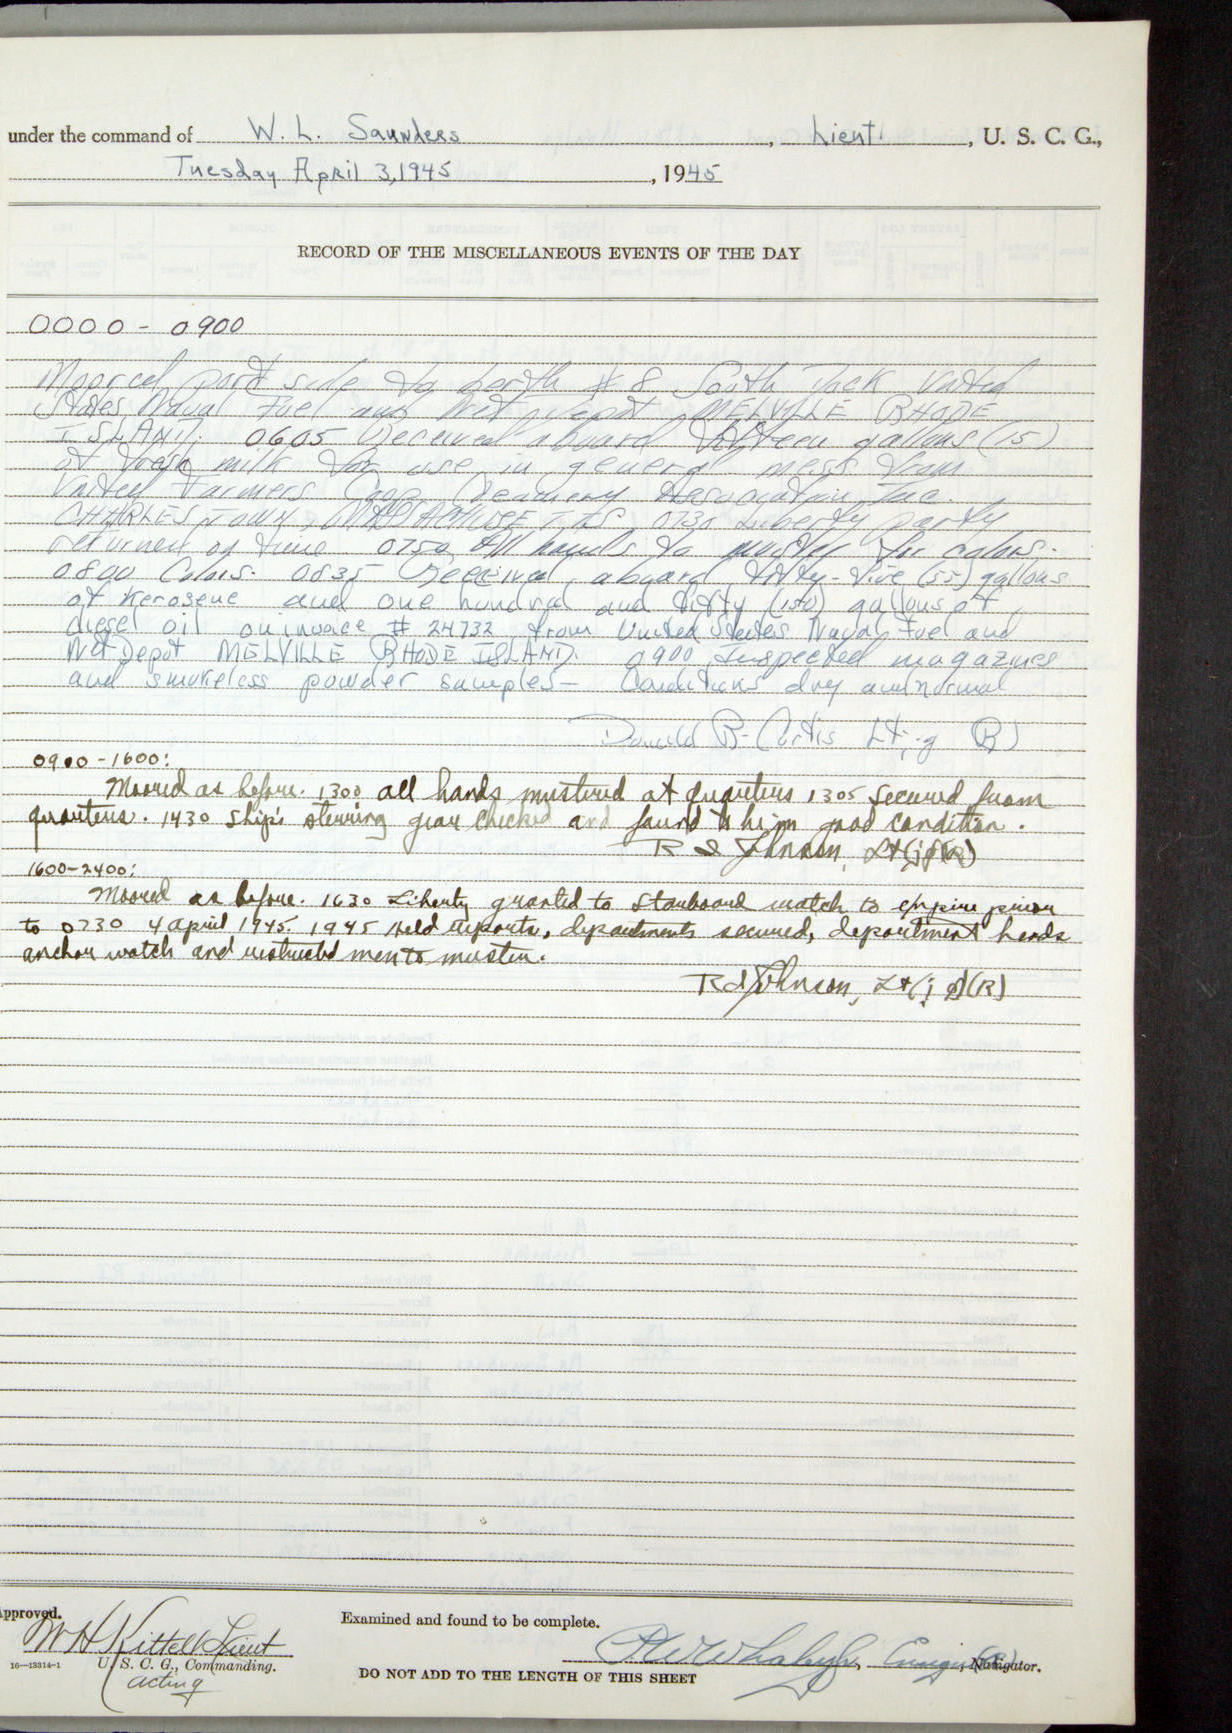 under the command of W. L. Saunders, Lieut., U. S. C. G.,
Tuesday April 3, 1945, 1945
RECORD OF THE MISCELLANEOUS EVENTS OF THE DAY
0000 - 0900
Moored port side to berth # 8 South Dock United
States Naval Fuel and Net Depot MELVILLE RHODE
ISLAND. 0605 Received aboard fifteen gallons (15)
of fresh milk for use in general mess from
United Farmers Coop Creamery Association, Inc.
CHARLESTOWN, MASSACHUSETTS, 0730 Liberty party
returned on time 0750 All hands to muster for colors.
0800 Colors. 0835 Received aboard fifty-five (55) gallons
of kerosene and one hundred and fifty (150) gallons of
diesel oil on invoice # 24732 from United States Naval Fuel and
Net Depot MELVILLE RHODE ISLAND. 0900 Inspected magazines
and smokeless powder samples - Conditions dry and normal
Donald R. Curtis Lt.j.g (R)
0900-1600:
Moored as before. 1300 all hands mustered at quarters 1305 secured from
quarters. 1430 ship's steering gear checked and found to be in good condition.
R L Johnson, Lt(jg)(R)
1600-2400:
Moored as before. 1630 Liberty granted to starboard watch to expire prior
to 0730 4 April 1945. 1945 held reports, departments secured, department heads
anchor watch and restricted men to muster.
R L Johnson, Lt(jg)(R)
Approved.
W H Kittell Lieut
U. S. C. G., Commanding.
acting
16-13314-1
Examined and found to be complete.
Ensign (R), Navigator.
DO NOT ADD TO THE LENGTH OF THIS SHEET